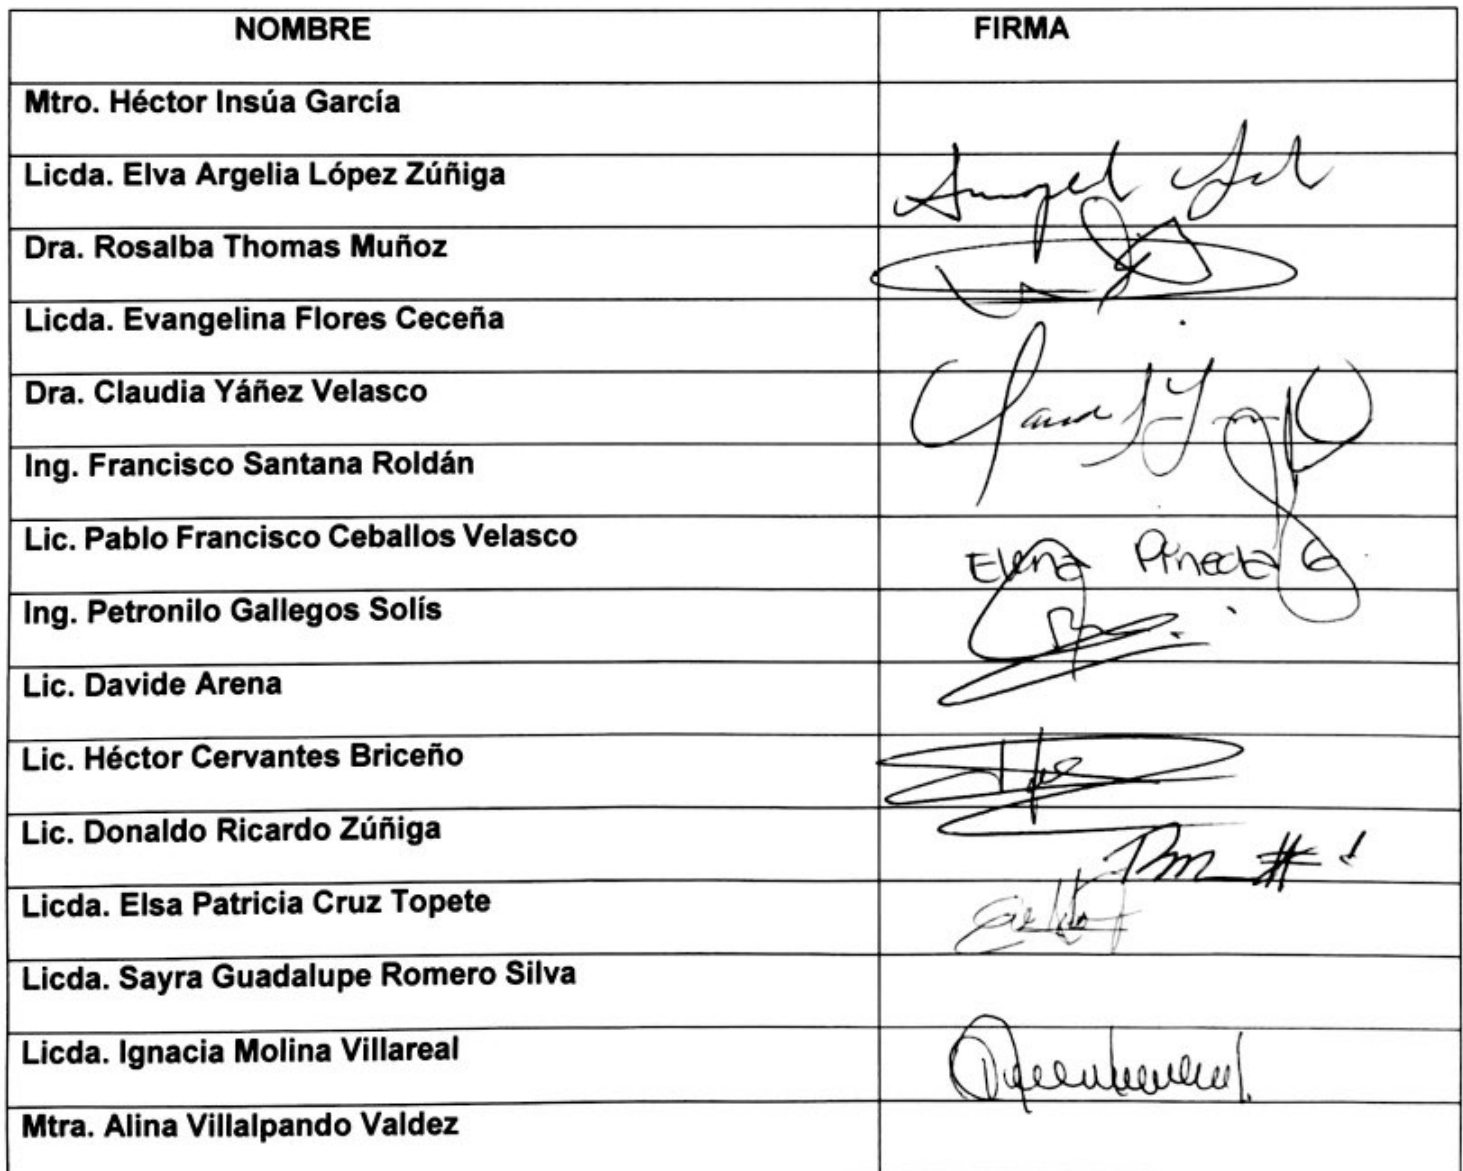 NOMBRE FIRMA
Mtro. Héctor Insúa García
Licda. Elva Argelia López Zúñiga
Dra. Rosalba Thomas Muñoz
Licda. Evangelina Flores Ceceña
Dra. Claudia Yáñez Velasco
Ing. Francisco Santana Roldán
Lic. Pablo Francisco Ceballos Velasco Elena Pineda G
Ing. Petronilo Gallegos Solís
Lic. Davide Arena
Lic. Héctor Cervantes Briceño
Lic. Donaldo Ricardo Zúñiga
Licda. Elsa Patricia Cruz Topete
Licda. Sayra Guadalupe Romero Silva
Licda. Ignacia Molina Villareal
Mtra. Alina Villalpando Valdez